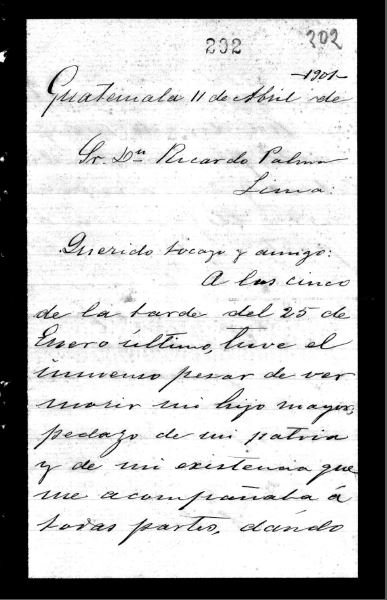 202 202
-1901-
Guatemala 11 de Abril de
Sr. Dn Ricardo Palma
Lima:
Querido tocayo y amigo:
A las cinco
de la tarde del 25 de
Enero último, tuve el
inmenso pesar de ver
morir mi hijo mayor,
pedazo de mi patria
y de mi existencia que
me acompañaba á
todas partes, dándo